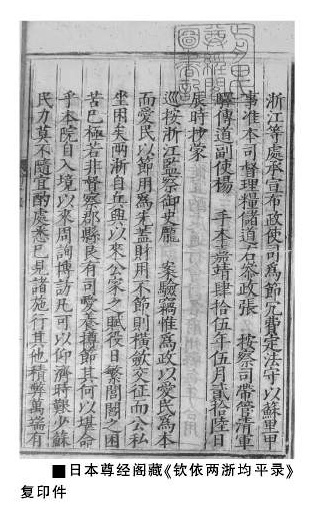 浙江等處承宣布政使司為節冗費定法守以蘇里甲
事准本司督理糧儲道右參政張 按察司帶管清軍
驛傳道副使楊 手本嘉靖肆拾伍年伍月貳拾陸日
辰時抄蒙
巡按浙江監察御史龐 案驗竊惟為政以愛民為本
而愛民以節用為先蓋財用不節則橫斂交征而公私
坐困矣兩浙自兵興以來公家之賦役日繁閭閻之困
苦已極若非督察郡縣良有司愛養撙節其何以堪命
乎本院自入境以來周詢博訪凡可以仰濟時艱少蘇
民力莫不隨宜酌處悉已見諸施行其他積弊萬端有
尊經閣
圖書記
■日本尊经阁藏《钦依两浙均平录》
复印件